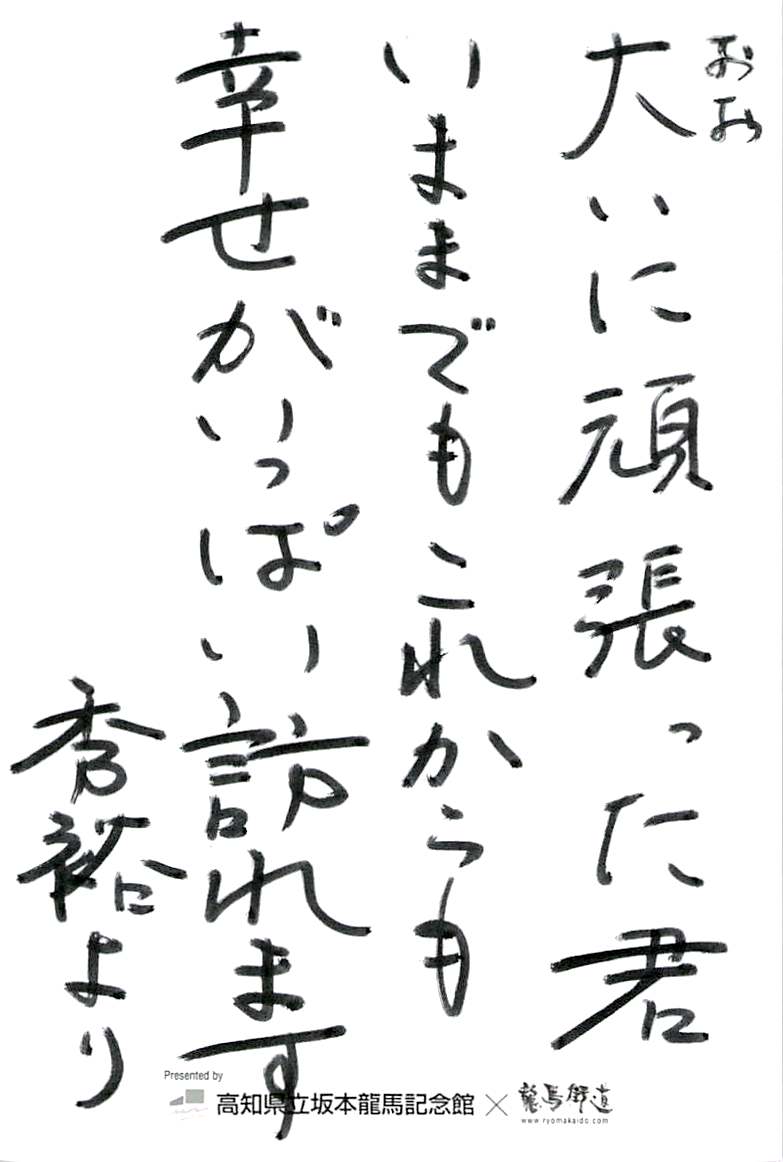 おお
大いに頑張った君
いままでもこれからも
幸せがいっぱい訪れます
秀裕より
Presented by
高知県立坂本龍馬記念館 × 龍馬街道
www.ryomakaido.com